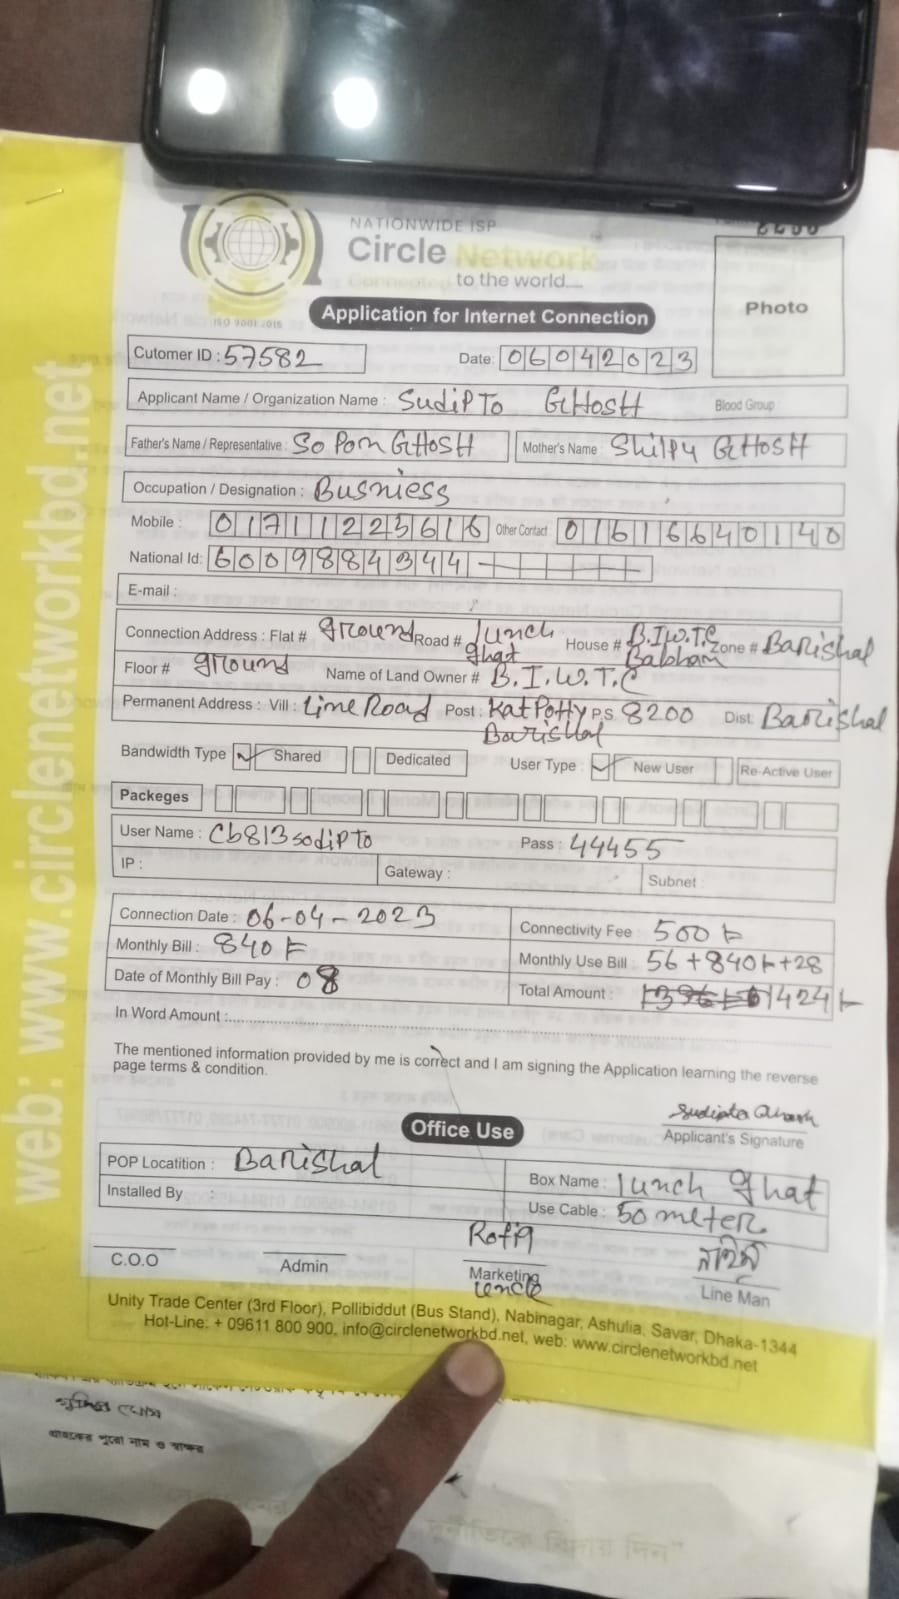 NATIONWIDE ISP
Circle Network
to the world....
ISO 9001:2015
Application for Internet Connection
Photo
Cutomer ID : 57582
Date: 06042023
Applicant Name / Organization Name : SudiPTo GHosH
Blood Group :
Father's Name / Representative : So Pom GHosH
Mother's Name : Shilpy GHosH
Occupation / Designation : Busniess
Mobile : 01711225616 Other Contact 01616640140
National Id: 6009884344
E-mail :
Connection Address : Flat # ground Road # lunch ghat House # B.I.W.T.C Babham Zone # Barishal
Floor # ground Name of Land Owner # B.I.W.T.C
Permanent Address : Vill : Line Road Post : KatPotty P.S 8200 Dist. Barishal
Barishal
Bandwidth Type Shared Dedicated User Type : New User Re-Active User
Packeges
User Name : Cb813sodipto Pass : 44455
IP : Gateway : Subnet :
Connection Date : 06-04-2023 Connectivity Fee : 500
Monthly Bill : 840 Monthly Use Bill : 56+840+28
Date of Monthly Bill Pay : 08 Total Amount : 1424
In Word Amount :
The mentioned information provided by me is correct and I am signing the Application learning the reverse
page terms & condition.
Applicant's Signature
Office Use
POP Locatition : Barishal Box Name : lunch ghat
Installed By : Use Cable : 50 meter
C.O.O Admin Marketing Line Man
Unity Trade Center (3rd Floor), Pollibiddut (Bus Stand), Nabinagar, Ashulia, Savar, Dhaka-1344
Hot-Line: + 09611 800 900, info@circlenetworkbd.net, web: www.circlenetworkbd.net
web: www.circlenetworkbd.net
গ্রাহকের পুরো নাম ও স্বাক্ষর